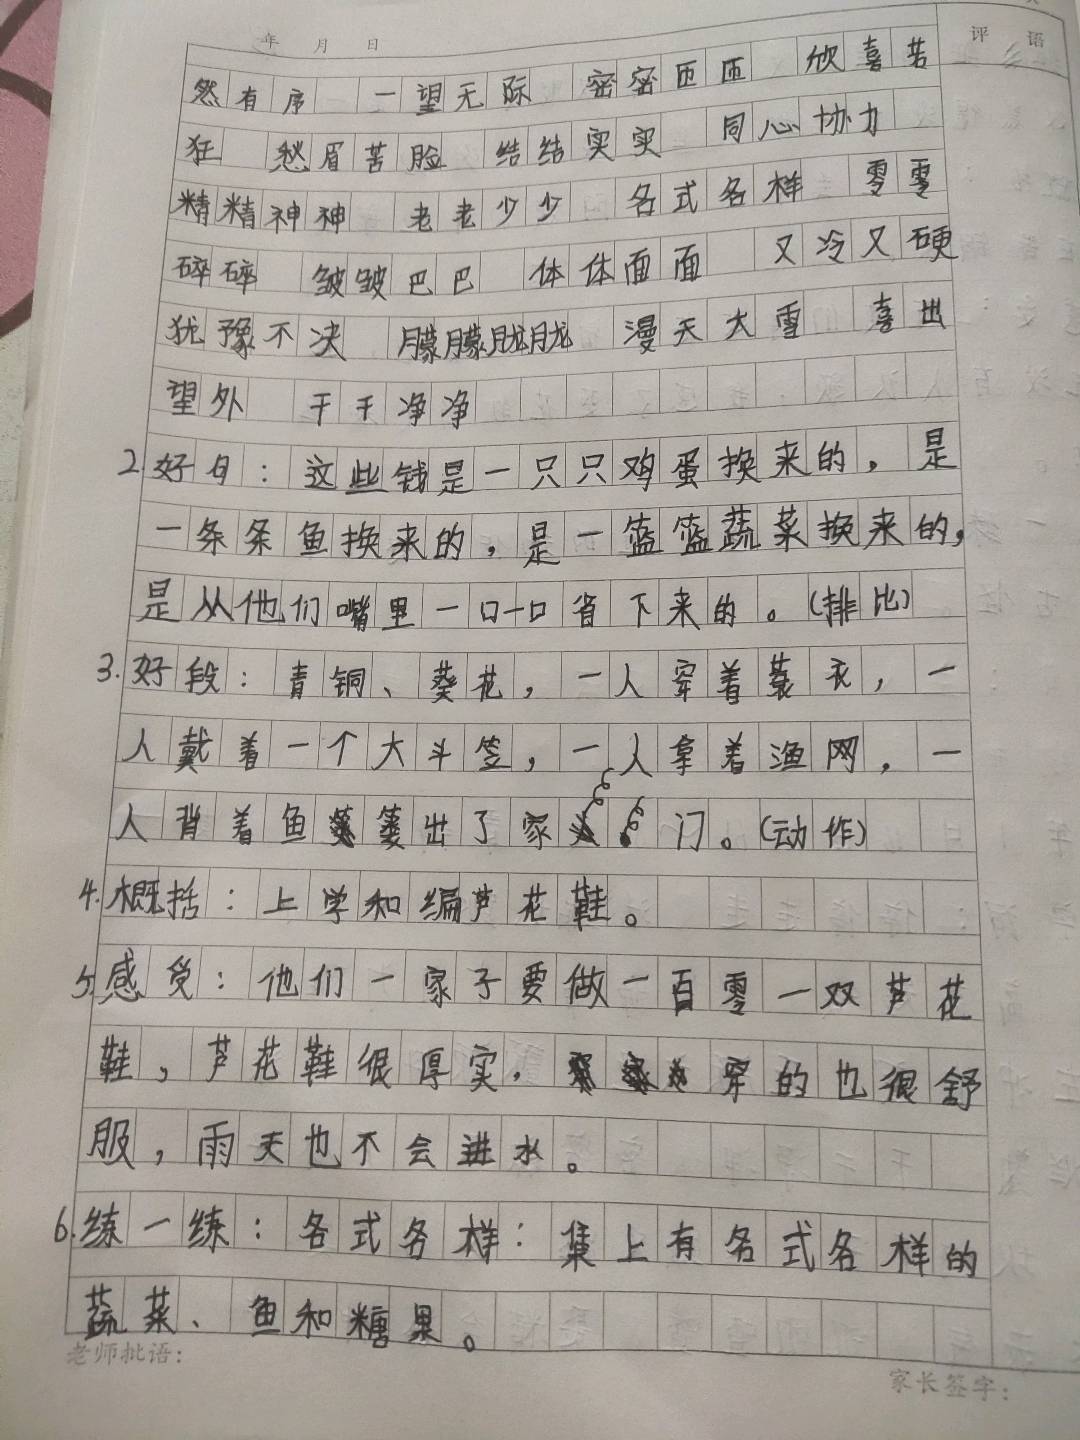 年 月 日
评 语
然有序 一望无际 密密匝匝 欣喜若
狂 愁眉苦脸 结结实实 同心协力
精精神神 老老少少 各式各样 零零
碎碎 皱皱巴巴 体体面面 又冷又硬
犹豫不决 朦朦胧胧 漫天大雪 喜出
望外 干干净净
2.好句：这些钱是一只只鸡蛋换来的，是
一条条鱼换来的，是一篮篮蔬菜换来的，
是从他们嘴里一口一口省下来的。（排比）
3.好段：青铜、葵花，一人穿着蓑衣，一
人戴着一个大斗笠，一人拿着渔网，一
人背着鱼篓出了家门。（动作）
4.概括：上学和编芦花鞋。
5.感受：他们一家子要做一百零一双芦花
鞋，芦花鞋很厚实，穿的也很舒
服，雨天也不会进水。
6.练一练：各式各样：集上有各式各样的
蔬菜、鱼和糖果。
老师批语：
家长签字：